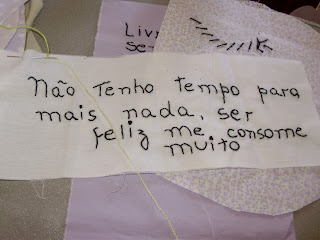 Livr
se-
Não tenho tempo para
mais nada, ser
feliz me consome
muito